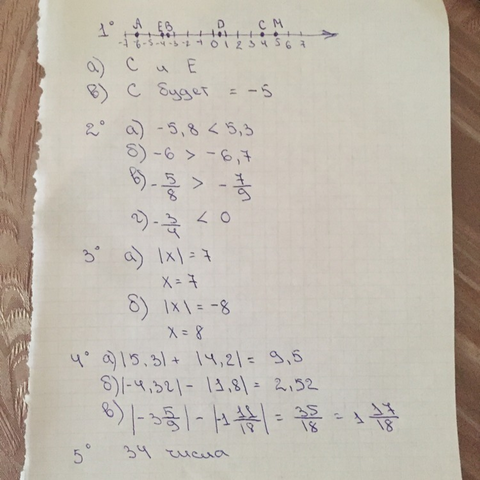 1° A E B D C M
-7 -6 -5 -4 -3 -2 -1 0 1 2 3 4 5 6 7
а) C и E
в) C будет = -5
2° а) -5,8 < 5,3
б) -6 > -6,7
в) -5/8 > -7/9
г) -3/4 < 0
3° а) |x| = 7
x = 7
б) |x| = -8
x = 8
4° а) |5,3| + |4,2| = 9,5
б) |-4,32| - |1,8| = 2,52
в) |-3 5/9| - |-1 11/18| = 35/18 = 1 17/18
5° 34 числа